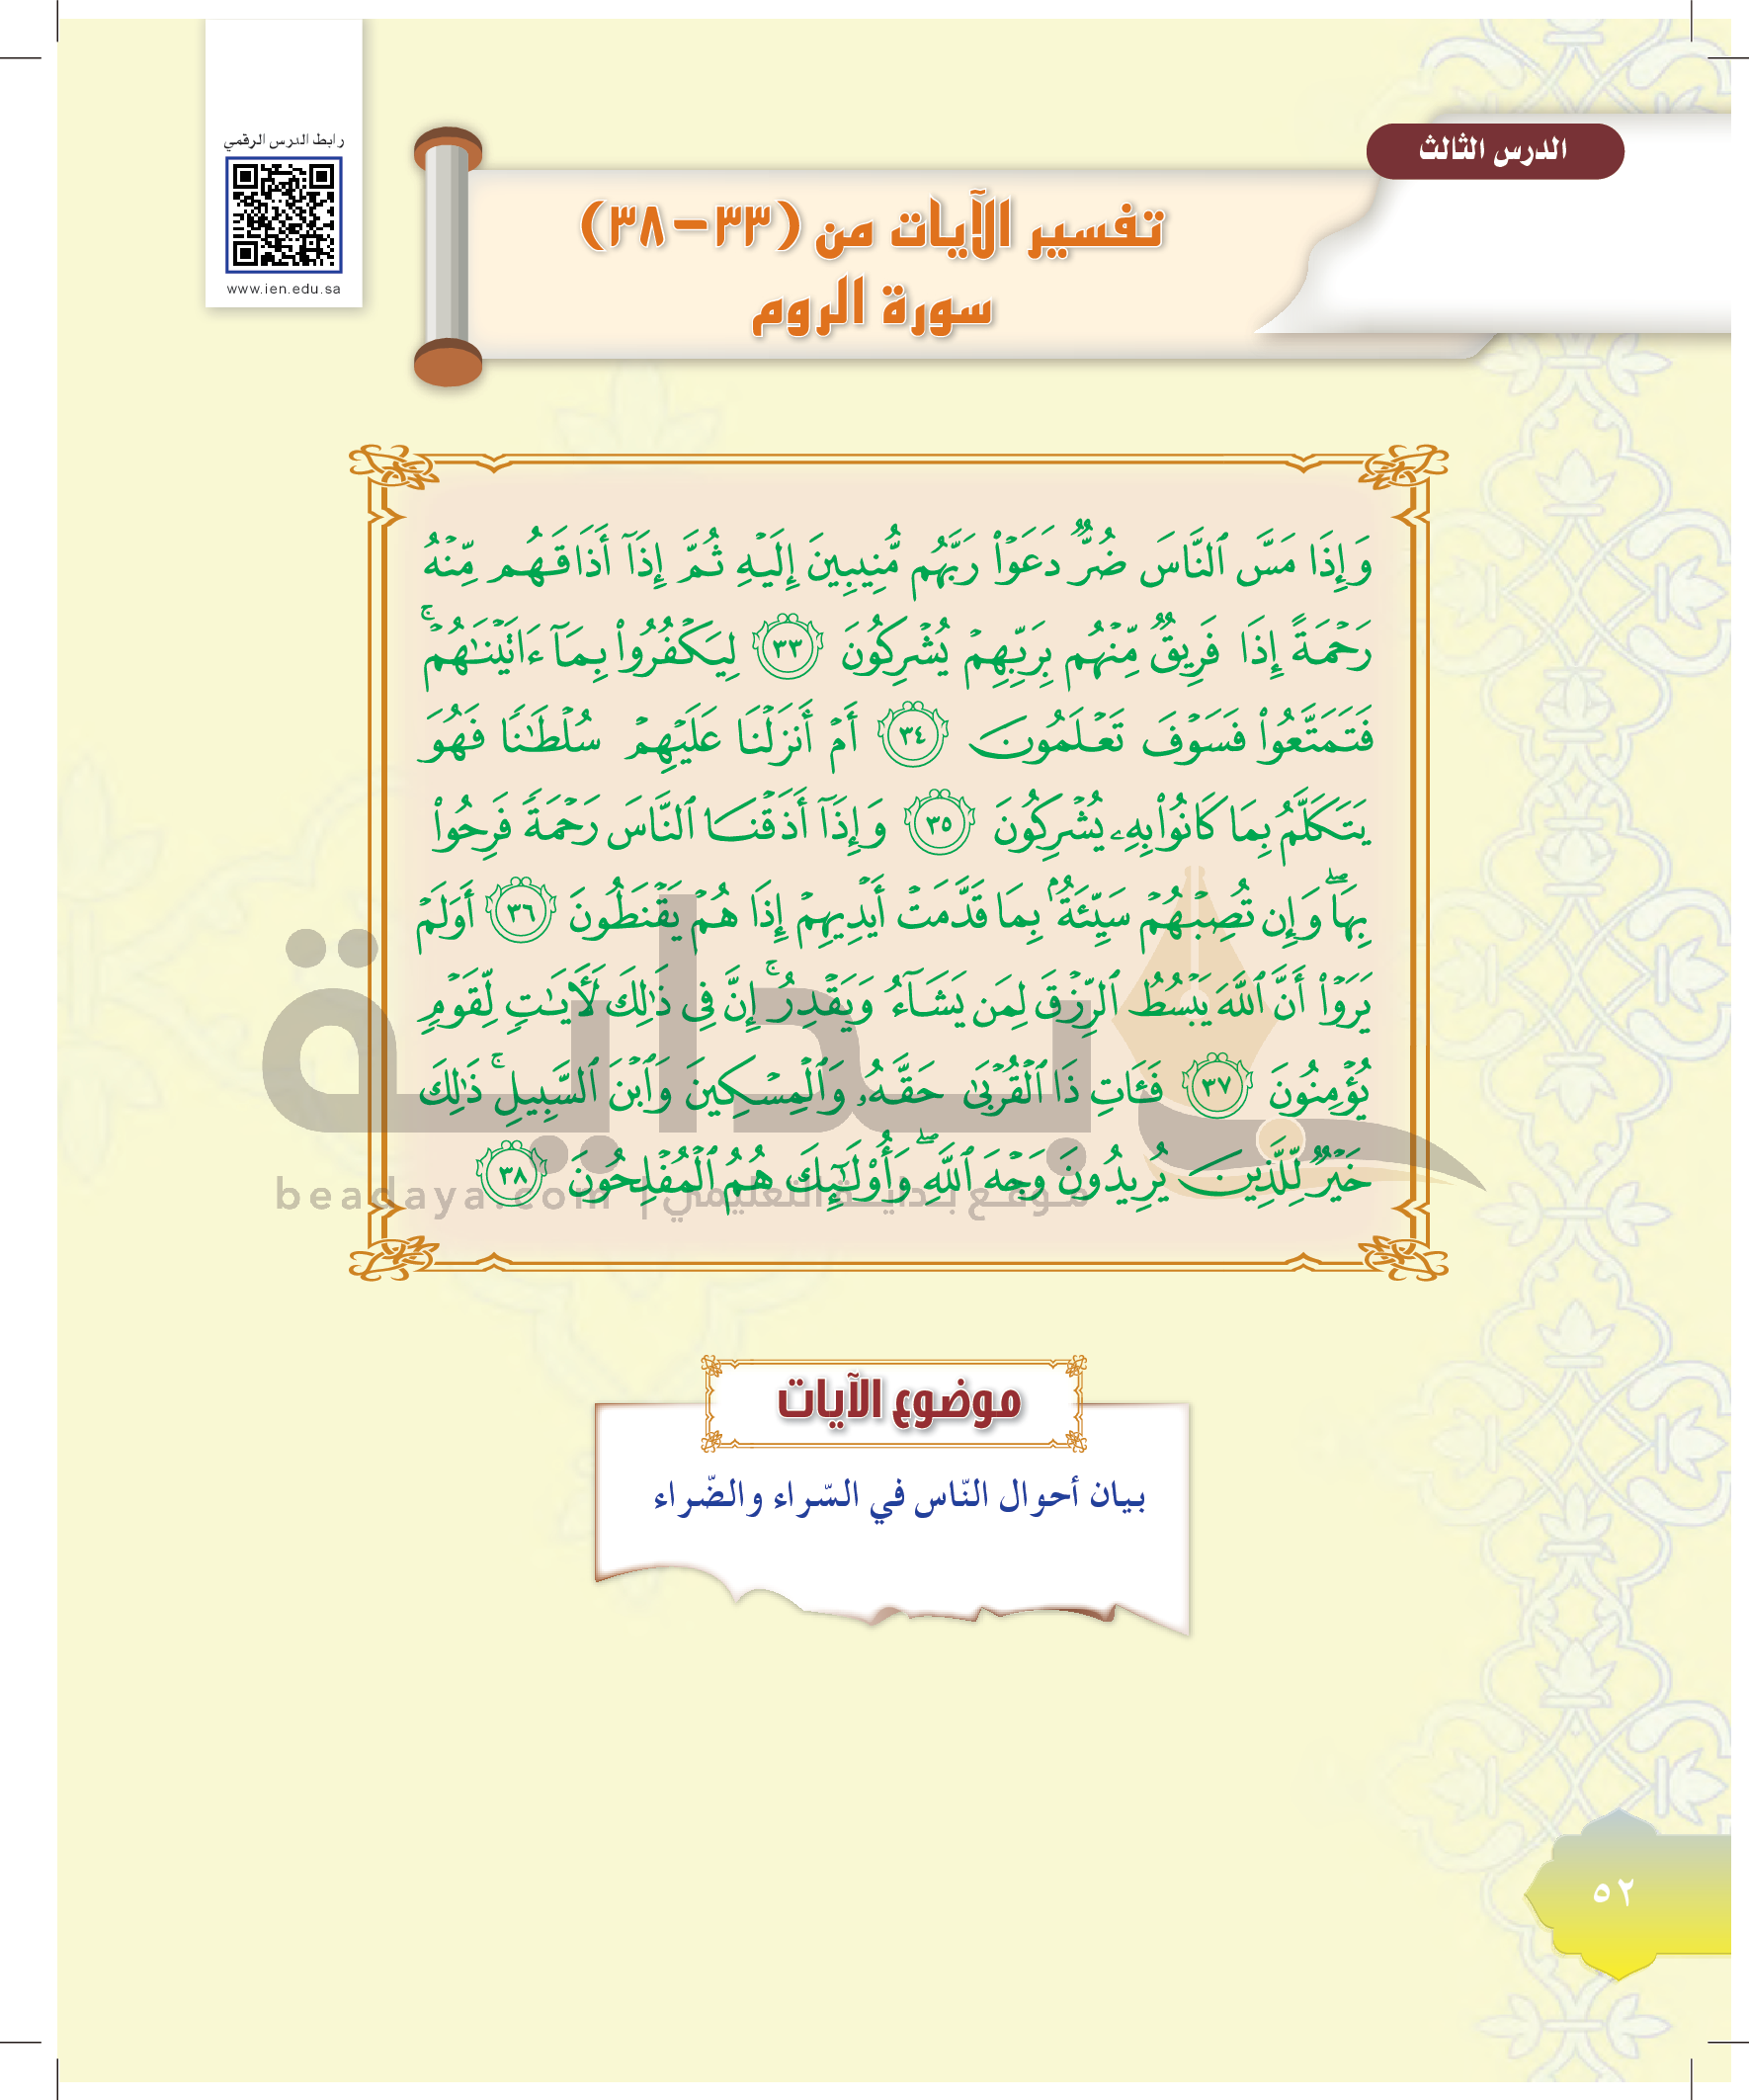 الدرس الثالث
رابط الدرس الرقمي
www.ien.edu.sa
تفسير الآيات من (٣٣-٣٨)
سورة الروم
وَإِذَا مَسَّ ٱلنَّاسَ ضُرٌّ دَعَوْا۟ رَبَّهُم مُّنِيبِينَ إِلَيْهِ ثُمَّ إِذَآ أَذَاقَهُم مِّنْهُ
رَحْمَةً إِذَا فَرِيقٌ مِّنْهُم بِرَبِّهِمْ يُشْرِكُونَ ٣٣ لِيَكْفُرُوا۟ بِمَآ ءَاتَيْنَٰهُمْ ۚ
فَتَمَتَّعُوا۟ فَسَوْفَ تَعْلَمُونَ ٣٤ أَمْ أَنزَلْنَا عَلَيْهِمْ سُلْطَٰنًا فَهُوَ
يَتَكَلَّمُ بِمَا كَانُوا۟ بِهِۦ يُشْرِكُونَ ٣٥ وَإِذَآ أَذَقْنَا ٱلنَّاسَ رَحْمَةً فَرِحُوا۟
بِهَا ۖ وَإِن تُصِبْهُمْ سَيِّئَةٌۢ بِمَا قَدَّمَتْ أَيْدِيهِمْ إِذَا هُمْ يَقْنَطُونَ ٣٦ أَوَلَمْ
يَرَوْا۟ أَنَّ ٱللَّهَ يَبْسُطُ ٱلرِّزْقَ لِمَن يَشَآءُ وَيَقْدِرُ ۚ إِنَّ فِى ذَٰلِكَ لَءَايَٰتٍ لِّقَوْمٍ
يُؤْمِنُونَ ٣٧ فَـَٔاتِ ذَا ٱلْقُرْبَىٰ حَقَّهُۥ وَٱلْمِسْكِينَ وَٱبْنَ ٱلسَّبِيلِ ۚ ذَٰلِكَ
خَيْرٌ لِّلَّذِينَ يُرِيدُونَ وَجْهَ ٱللَّهِ ۖ وَأُو۟لَٰٓئِكَ هُمُ ٱلْمُفْلِحُونَ ٣٨
بداية
موقع بداية التعليمي | beadaya.com
موضوع الآيات
بيان أحوال النّاس في السّراء والضّراء
٥٢